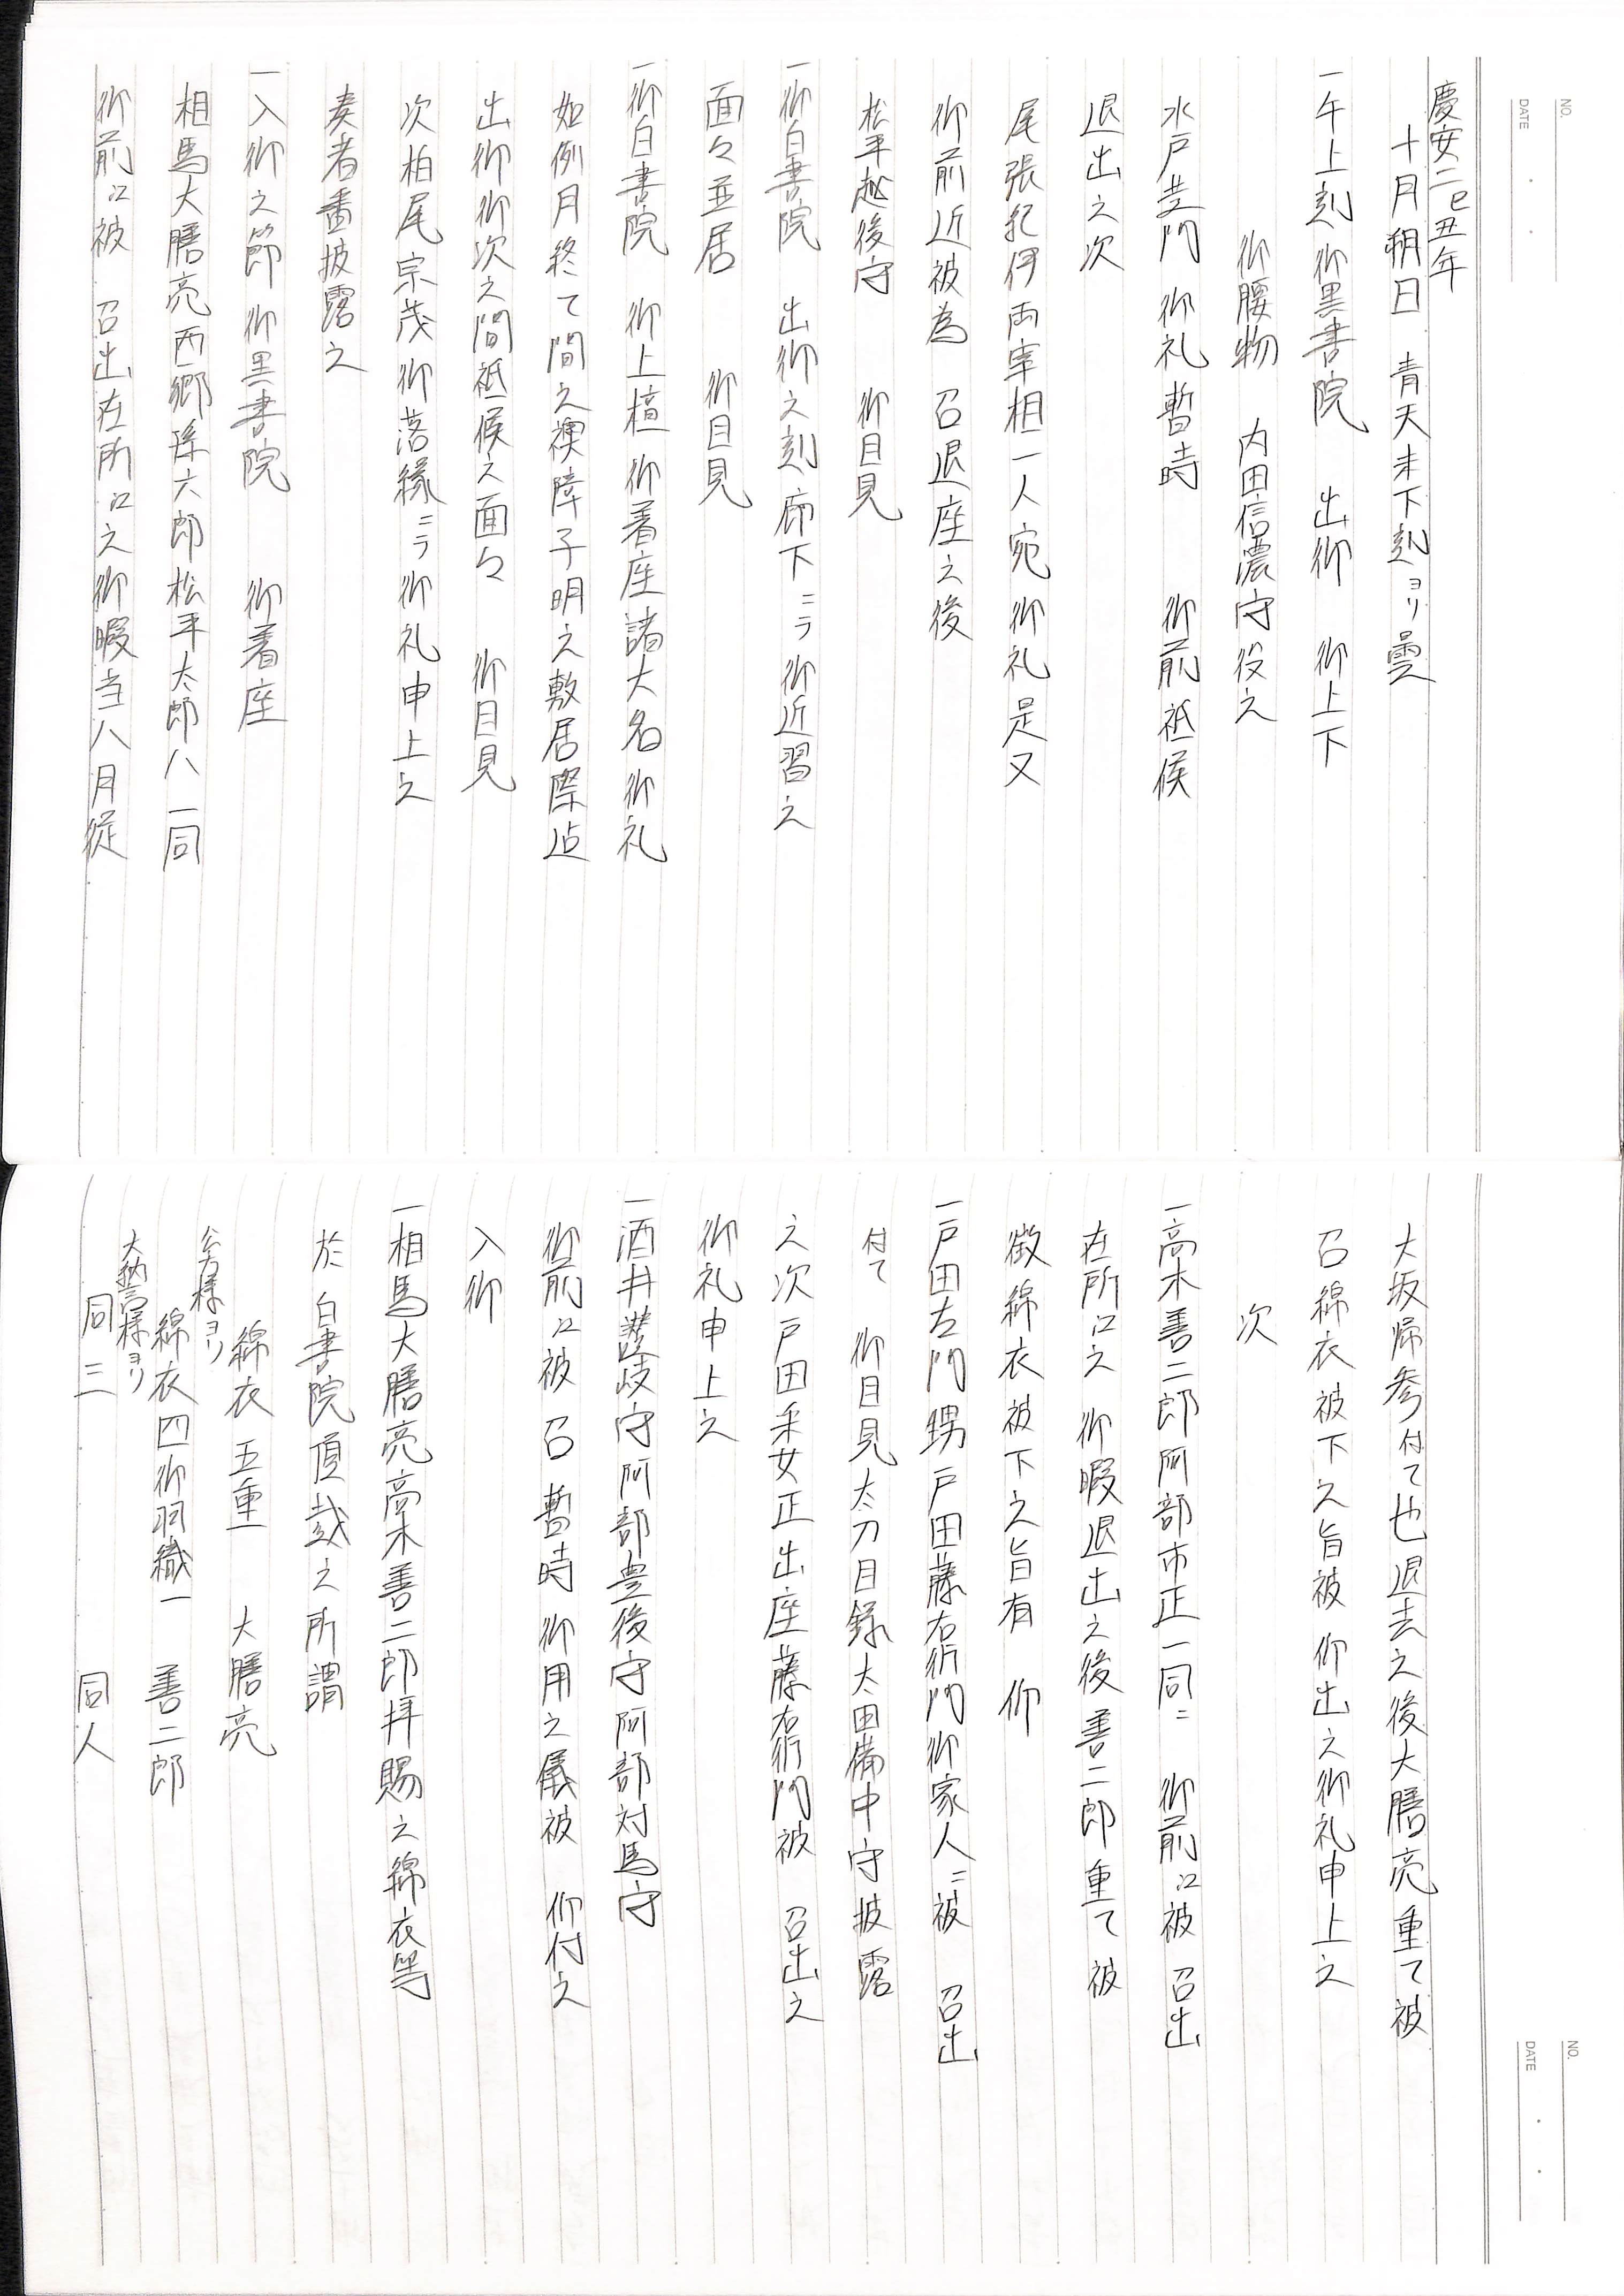 NO.
DATE
慶安二己丑年
十月朔日 青天未下刻ヨリ曇
一午上刻 御黒書院 出御 御上下
御腰物 内田信濃守役之
水戸黄門 御礼暫時 御前祗候
退出之次
尾張紀伊両宰相一人宛御礼是又
御前近被為 召退座之後
松平越後守 御目見
一御白書院 出御之刻廊下ニ而御近習之
面々並居 御目見
一御白書院 御上檀御着座諸大名御礼
如例月終て間之襖障子明之敷居際迠
出御御次之間祗候之面々 御目見
次柏尾宗茂御落縁ニ而御礼申上之
奏者番披露之
一入御之節御黒書院 御着座
相馬大膳亮西郷孫六郎松平太郎八一同
御前江被 召出在所江之御暇当八月従
NO.
DATE
大坂帰参付て也退去之後大膳亮重て被
召綿衣被下之旨被 仰出之御礼申上之
次
一高木善二郎阿部市正一同ニ 御前江被 召出
在所江之 御暇退出之後善二郎重て被
徴綿衣被下之旨有 仰
一戸田左門甥戸田藤右衛門御家人ニ被 召出
付て 御目見太刀目録太田備中守披露
之次戸田采女正出座藤右衛門被 召出之
御礼申上之
一酒井讃岐守阿部豊後守阿部対馬守
御前江被 召 暫時 御用之儀被 仰付之
入御
一相馬大膳亮高木善二郎拝賜之綿衣等
於 白書院頂戴之所謂
綿衣五重 大膳亮
公方様ヨリ
綿衣四御羽織一 善二郎
大納言様ヨリ
同三 同人